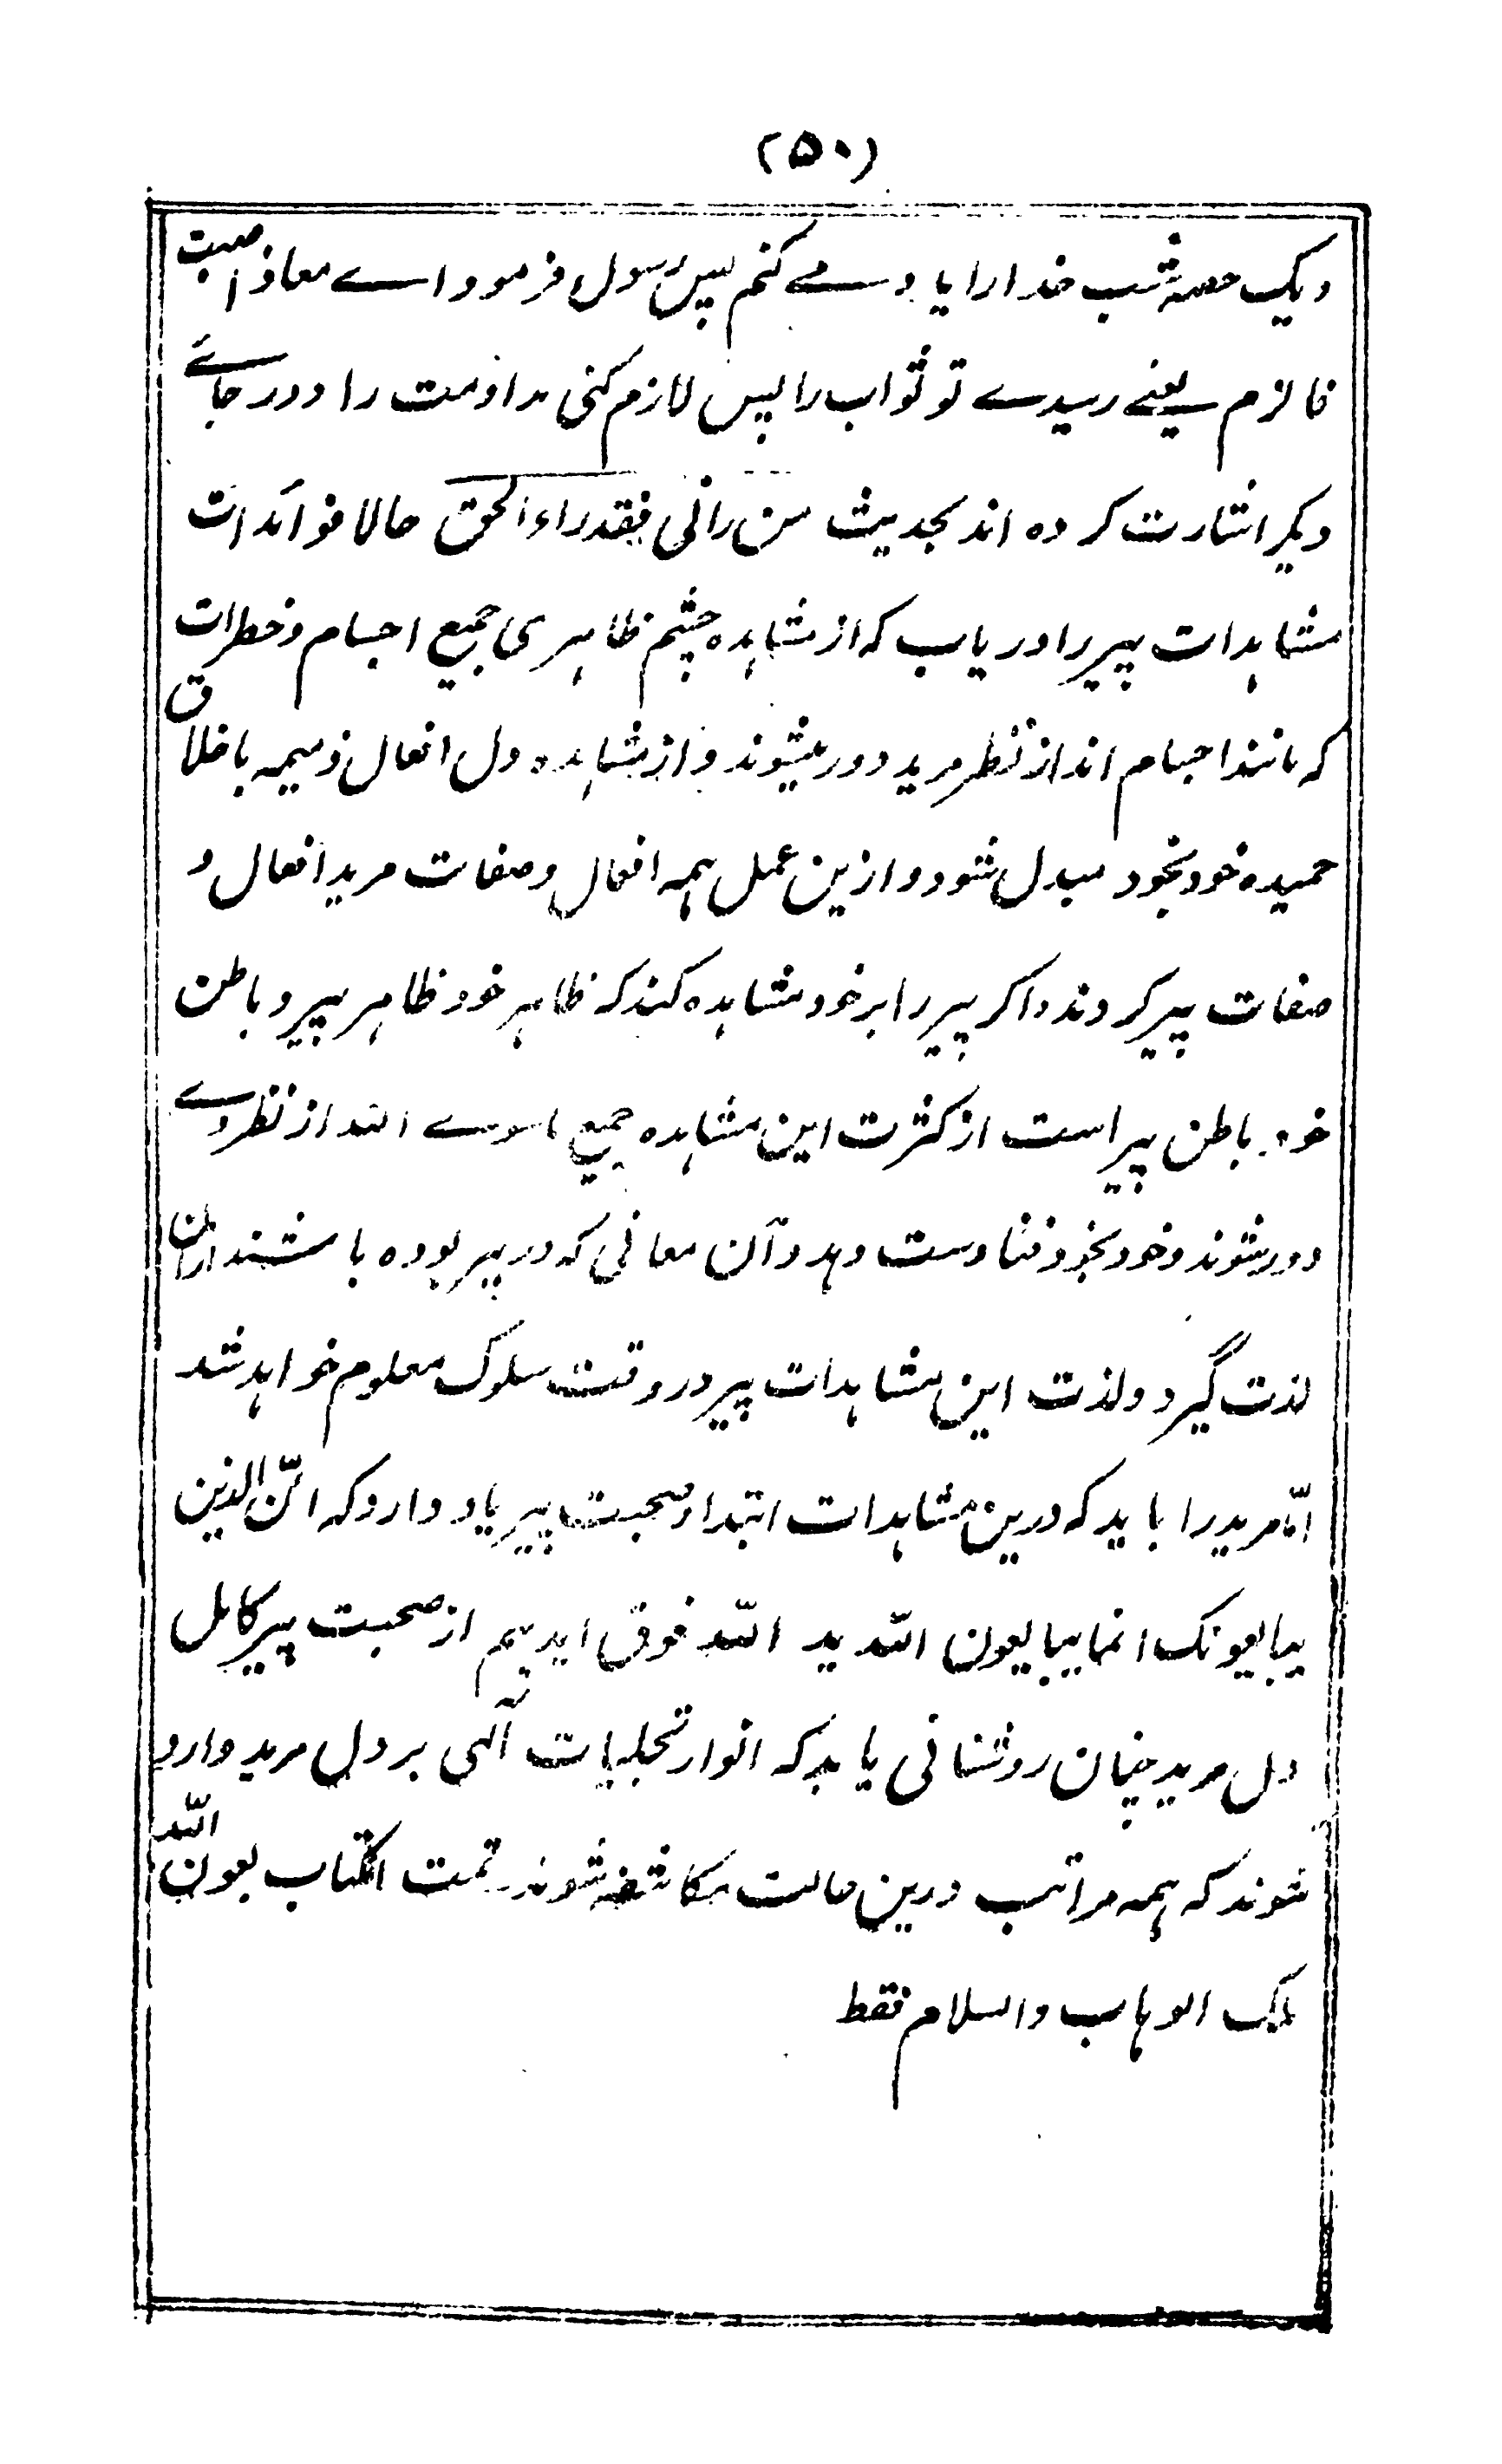 (۵۰)
ویک حصۂ شب خدارا یاد مے کنم پس رسول فرمود اے معاذ اصبت
فالزم یعنے رسیدے تو ثواب را پس لازم کنی مداومت را ودر جاۓ
دیگر اشارت کرده اند بحدیث من رانی فقد راء الحق حالا فوائدات
مشاہدات پیر را دریاب که از مشاہده چشم ظاہری جمیع اجسام وخطرات
که مانند اجسام اند از نظر مرید دور میشوند و از مشاہده دل افعال ذمیمه باخلاق
حمیده خود بخود مبدل شود و ازین عمل ہمه افعال وصفات مرید افعال و
صفات پیر گردند و اگر پیر را بر خود مشاہده کند که ظاہر خود ظاہر پیر و باطن
خود باطن پیر است از کثرت این مشاہده جمیع ماسوے الله از نظر وے
دور شوند و خود بخود فنا دست دہد و آن معانی که در پیر بوده باشند ازان
لذت گیرد ولذت این مشاہدات پیر در وقت سلوک معلوم خواہد شد
امّا مرید را باید که درین مشاہدات ابتدا صحبت پیر یاد دارد که انّ الذین
یبایعونک انما یبایعون اللّه ید اللّه فوق ایدیہم از صحبت پیر کامل
دل مرید چنان روشنائی یابد که انوار تجلیات آلہی بر دل مرید وارد
شوند که ہمه مراتب درین حالت مکاشفه شوند تمت الکتاب بعون اللّه
ملک الوہاب والسلام فقط